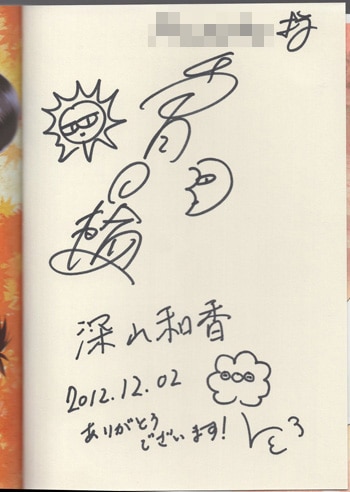 香月
日
輪
深山和香
2012.12.02
ありがとう
ございます!